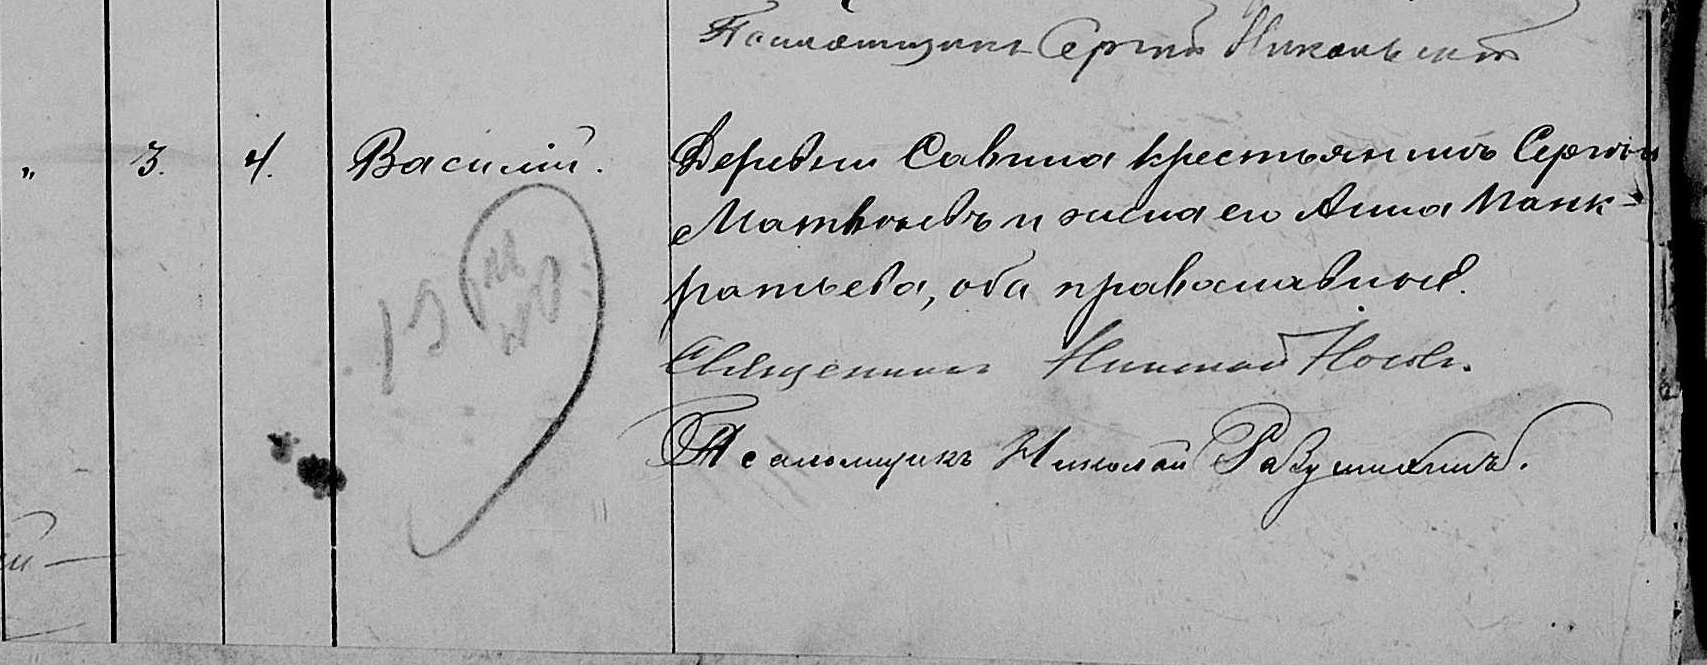 Псаломщикъ Сергій Никольскій
„ 3. 4. Василій. Деревни Савина крестьянинъ Сергѣй
Матвѣевъ и жена его Анна Панк-
ратьева, оба православные.
Священникъ Николай
Псаломщикъ Николай